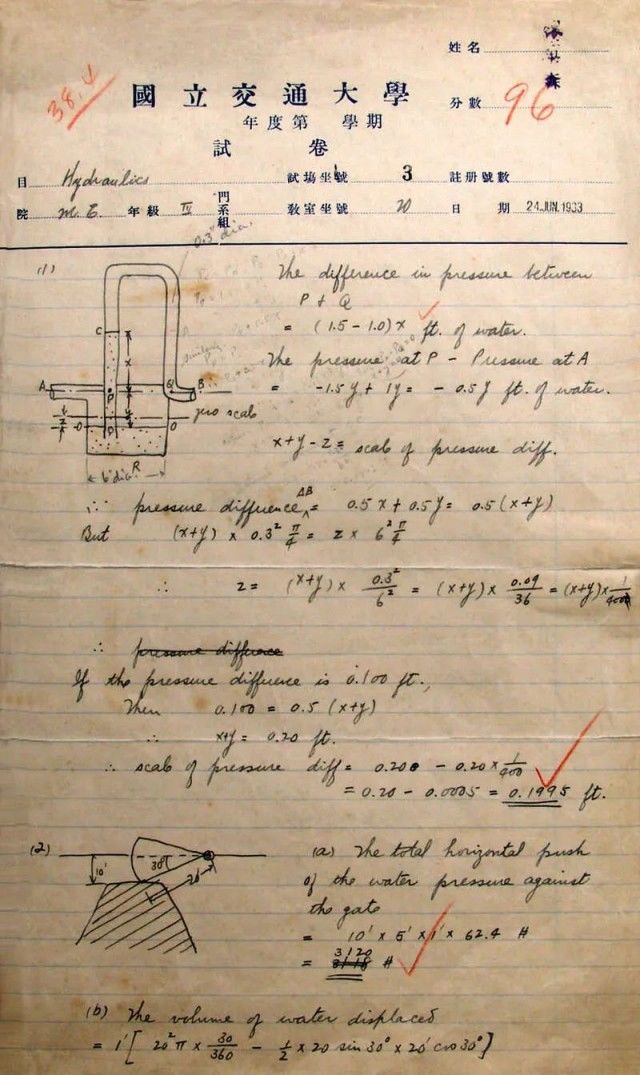 姓名
38.4
國立交通大學
分數 96
年度第 學期
試卷
目 Hydraulics 試場坐號 3 註册號數
院 M.E. 年級 IV 門系組 教室坐號 20 日期 24 JUN. 1933
0.3" dia.
(1) The difference in pressure between
P & Q
= (1.5 - 1.0) x ft. of water.
The pressure at P - Pressure at A
= -1.5y + 1y = - 0.5y ft. of water.
C
x
A P Q B
zero scale
O O
R
6" dia.
x+y-z = scale of pressure diff.
∴ pressure difference AB = 0.5x + 0.5y = 0.5 (x+y)
But (x+y) × 0.3² π/4 = z × 6² π/4
∴ z = (x+y) × 0.3²/6² = (x+y) × 0.09/36 = (x+y) × 1/400
∴ pressure difference
If the pressure difference is 0.100 ft.,
Then 0.100 = 0.5 (x+y)
∴ x+y = 0.20 ft.
∴ scale of pressure diff = 0.200 - 0.20 × 1/400
= 0.20 - 0.0005 = 0.1995 ft.
(2) (a) The total horizontal push
10' 30° 20'
of the water pressure against
the gate
= 10' × 5' × 1' × 62.4 #
= 3120 #
(b) The volume of water displaced
= 1' [ 20² π × 30/360 - 1/2 × 20 sin 30° × 20' cos 30° ]